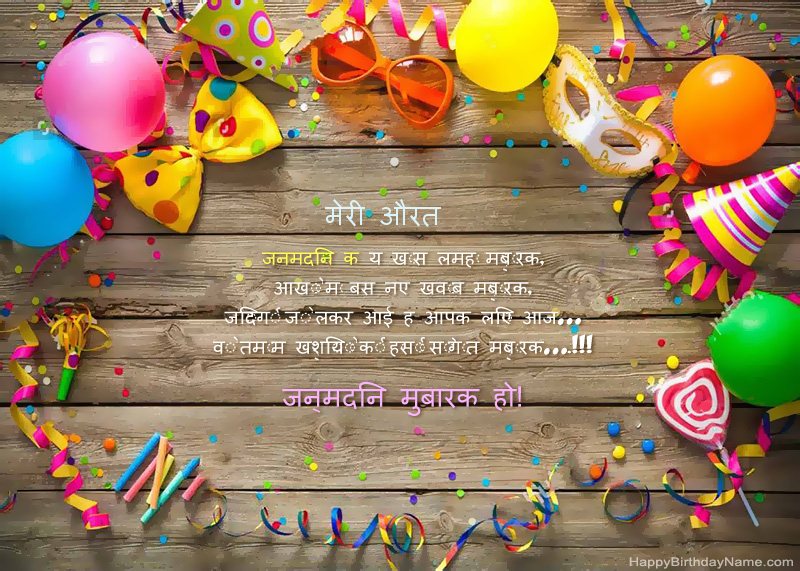 मेरी औरत
जनमदिन क य ख़ास लमहा मुबारक,
आखों में बस नए ख्वाब मुबारक,
जिंदगी जो लेकर आई ह आपक लिए आज...
वो तमाम खुशियों की हंसीं सौगात मुबारक...!!!
जन्मदिन मुबारक हो!
HappyBirthdayName.com